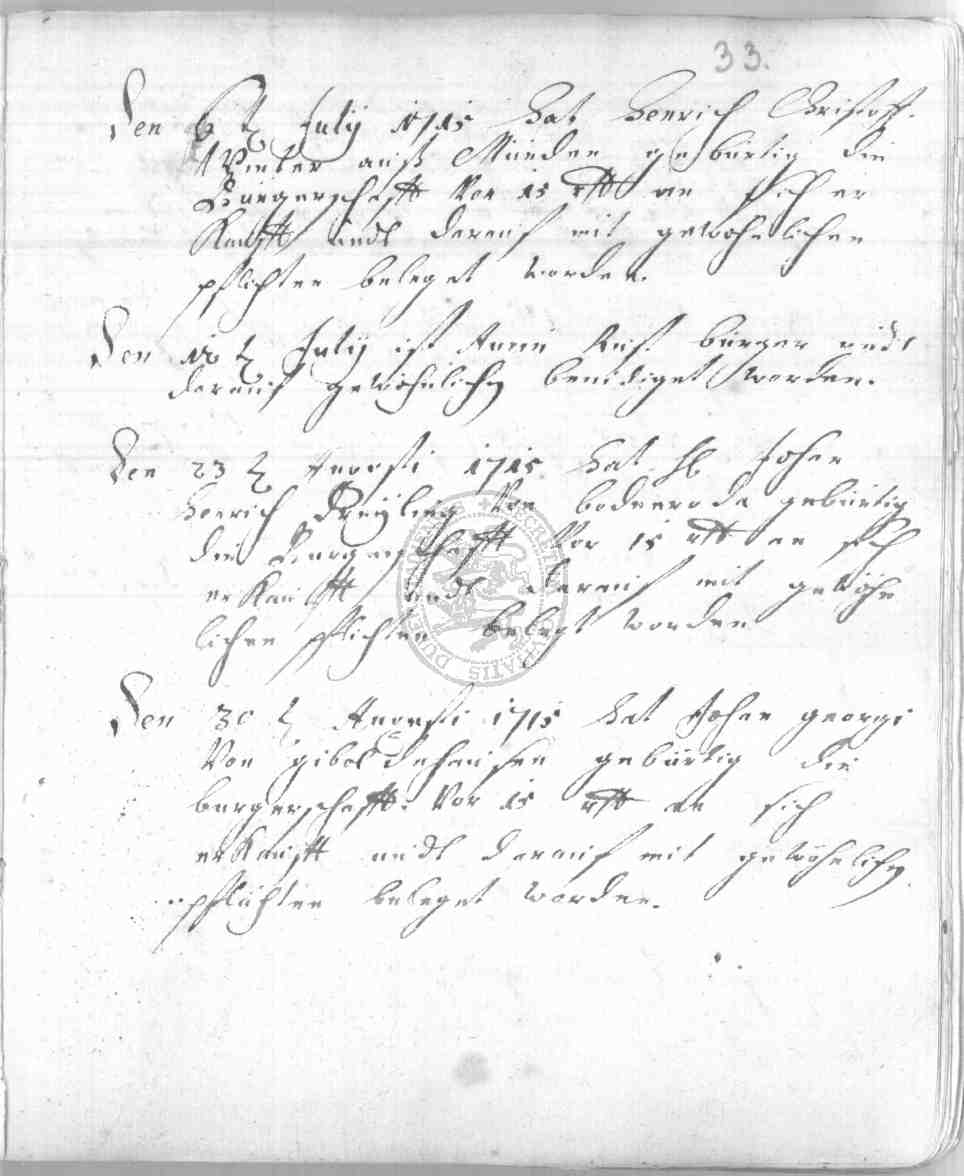 33.
Den 6 t July 1715 hat Henrich Christoff
Winter auß Münden gebürtig die
Bürgerschafft vor 15 rth an sich er
Kaufft undt darauf mit gewöhnlichen
pflichten beleget worden.
Den 18 t July ist bürger undt
darauf gewöhnlichen beeidiget worden.
Den 23 t Augusti 1715 hat H Johan
Henrich von bodenroda gebürtig
die Bürgerschafft vor 15 rth an sich
erKaufft undt darauf mit gewöhn
lichen pflichten belegt worden
Den 30 t Augusti 1715 hat Johan georg
Von giboldehausen gebürtig die
burgerschafft vor 15 rth an sich
erKaufft undt darauf mit gewöhnlichen
pflichten beleget worden.